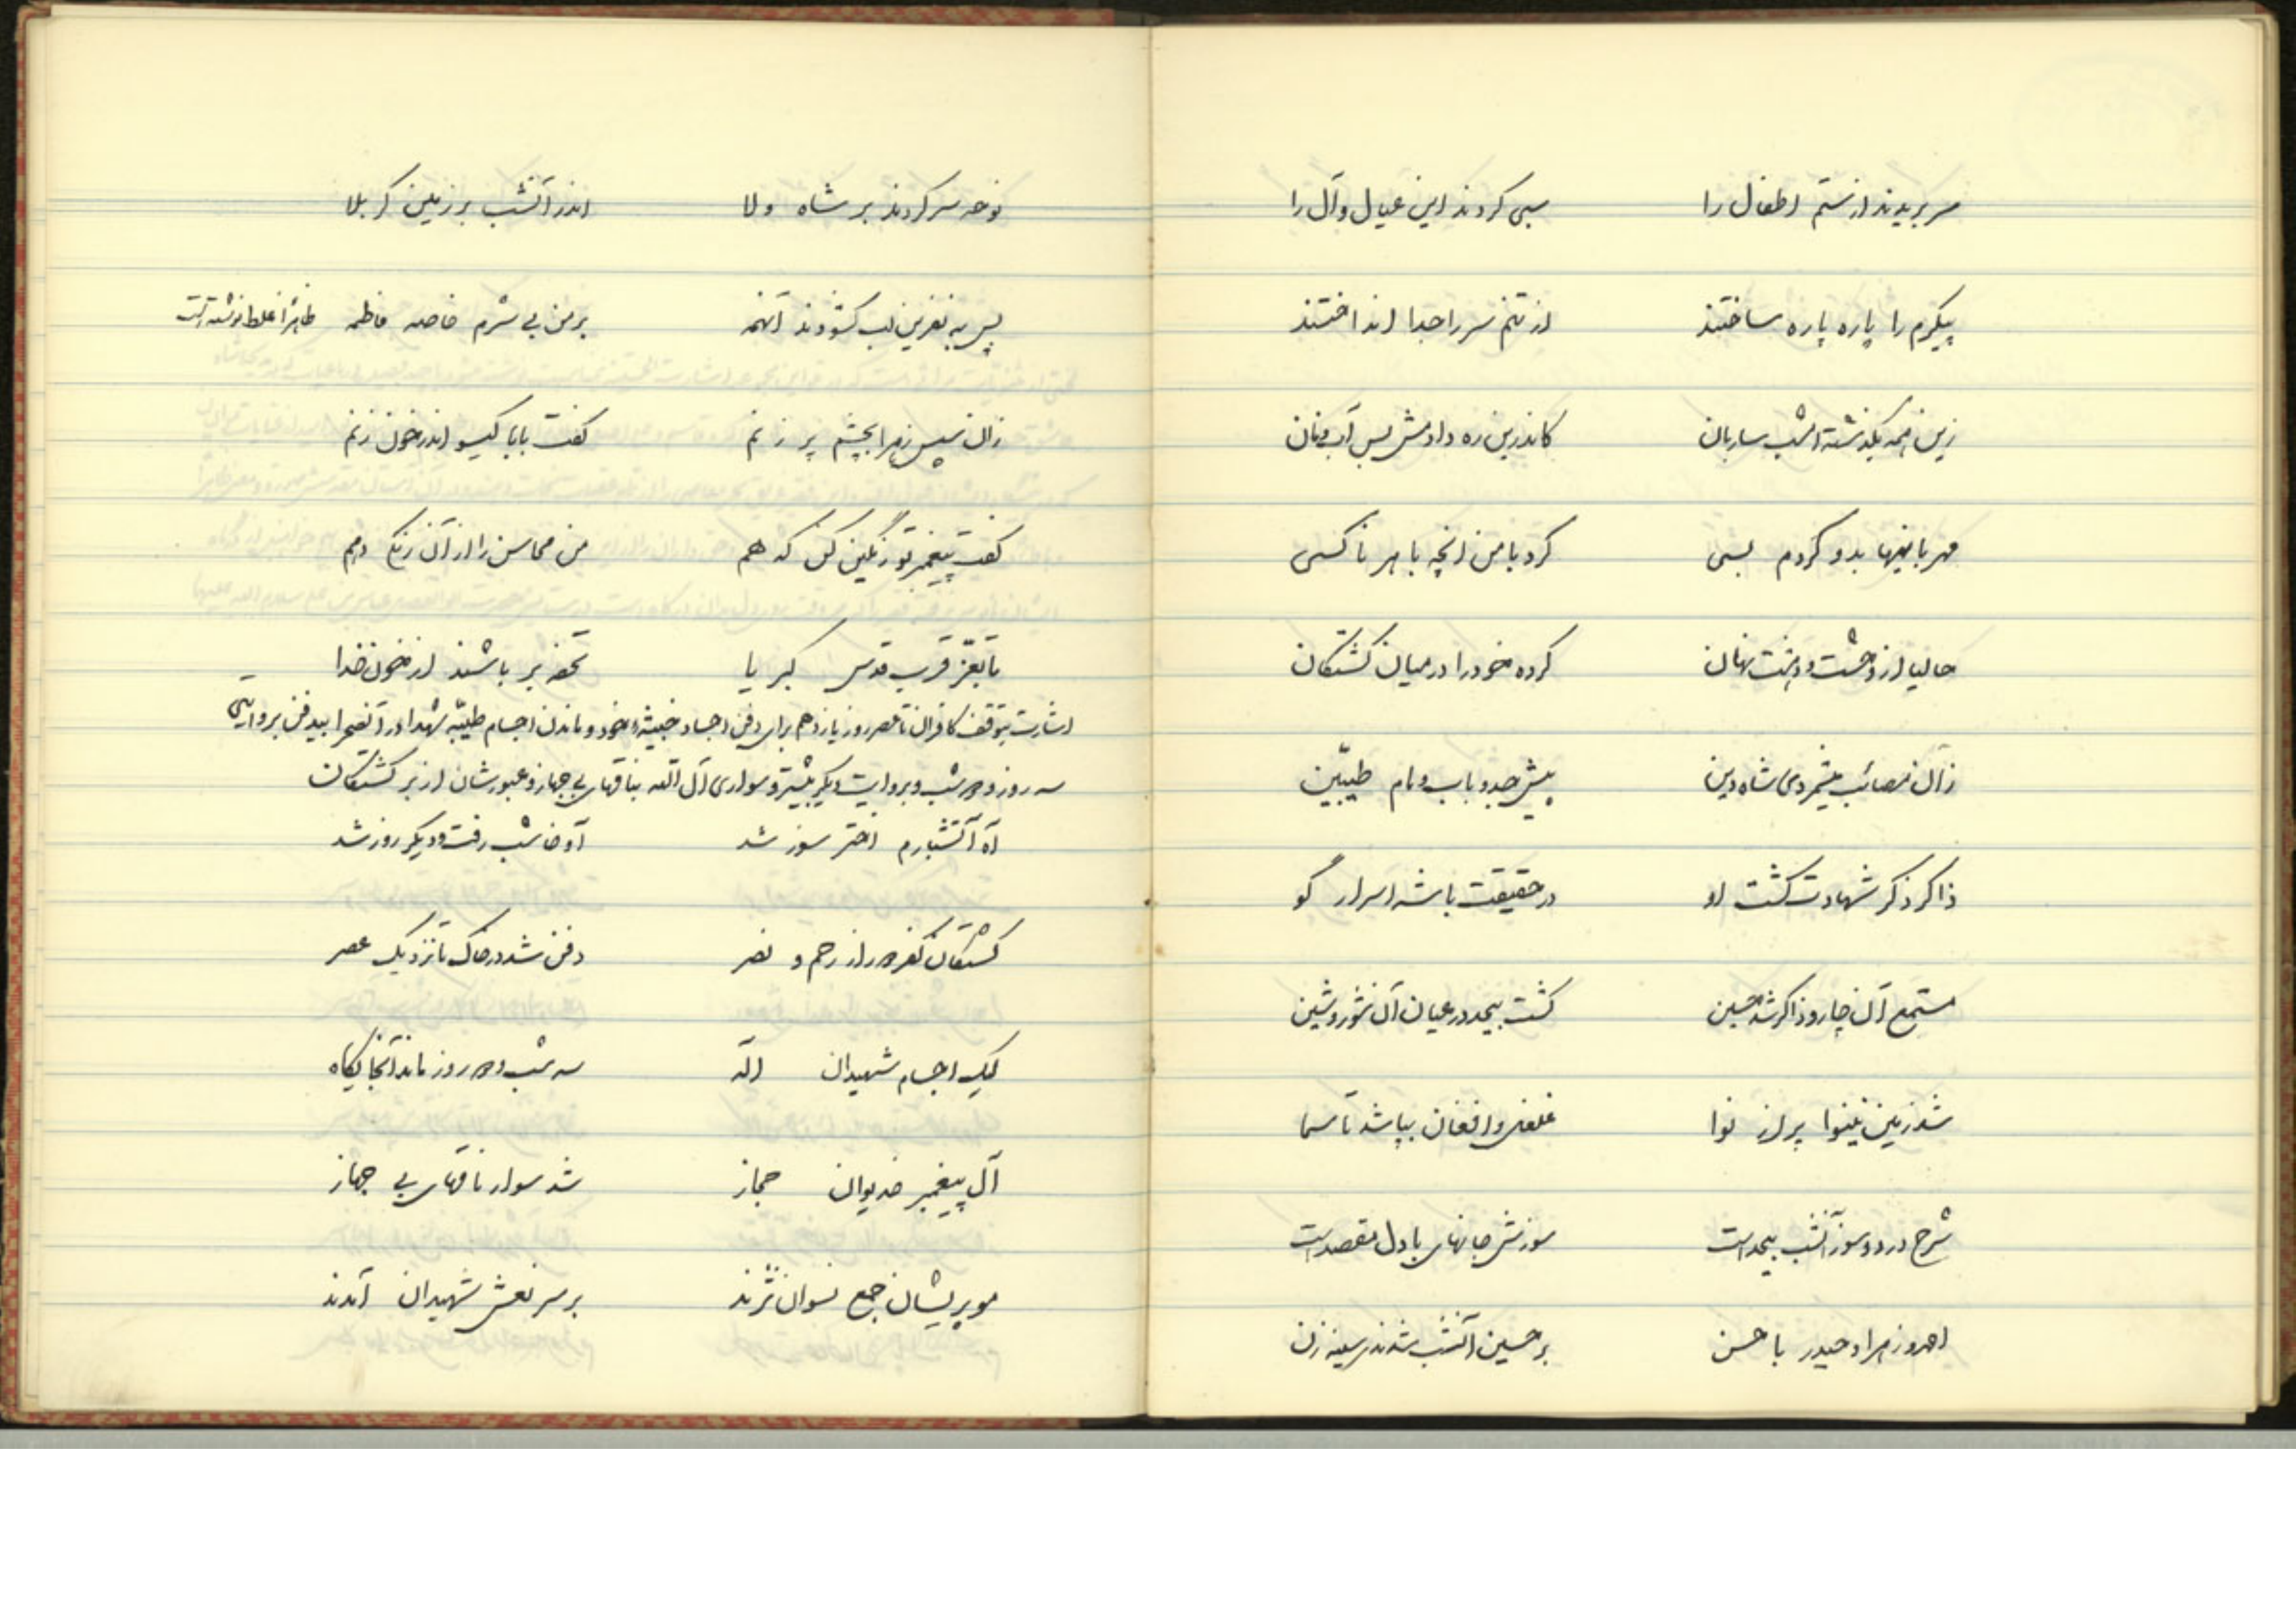 سر بریدند از ستم اطفال را سبی کردند این عیال و آل را
پیکرم را پاره پاره ساختند از تنم سر را جدا انداختند
زین همه بگذشته امشب ساربان کاندرین ره دادمش بس آب و نان
مهربانیها بدو کردم بسی کرد با من آنچه با هر ناکسی
حالیا از وحشت و دهشت نهان کرده خود را در میان کشتگان
زان مصائب میشمردی شاه دین پیش جد و باب و مام طیّبین
ذاکر ذکر شهادت گشت او در حقیقت با شه اسرار گو
مستمع آن چار و ذاکر شد حسین گشت بیحد در عیان آن شور و شین
شد زمین نینوا پر از نوا غلغل و افغان بپا شد تا سما
شرح درد و سوز آنشب بیحد است سوزش جانهای با دل مقصد است
احمد و زهرا و حیدر با حسن بر حسین آنشب شدندی سینه زن
نوحه سر کردند بر شاه ولا اندر آنشب بر زمین کربلا
پس به نفرین لب گشودند آنهمه بر من بی شرم خاصه فاطمه ظاهرا غلط نوشته است
زان سپس زهرا بچشم پر ز نم گفت بابا گیسو اندر خون زنم
گفت پیغمبر تو رنگین کن که هم من محاسن را از آن رنگ دهم
تا بعزّ قرب قدس کبریا تحفه بر باشند از خون خدا
اشارت بتوقف کافران تا عصر روز یازدهم برای دفن اجساد خبیثهٔ خود و ماندن اجسام طیّبه شهدا در آنصحرا بیدفن بروایتی
سه روز و دو شب و بروایت دیگر بیشتر و سواری آل الله بناقهای بی جهاز و عبورشان از بر کشتگان
آه آتشبارم اختر سوز شد آوخا شب رفت و دیگر روز شد
کشتگان کفر دور از رحم و نصر دفن شد در خاک تا نزدیک عصر
لیک اجسام شهیدان اله سه شب و دو روز ماند آنجایگاه
آل پیغمبر خدیوان حجاز شد سوار ناقهای بی جهاز
مو پریشان جمع نسوان نژند بر سر نعش شهیدان آمدند